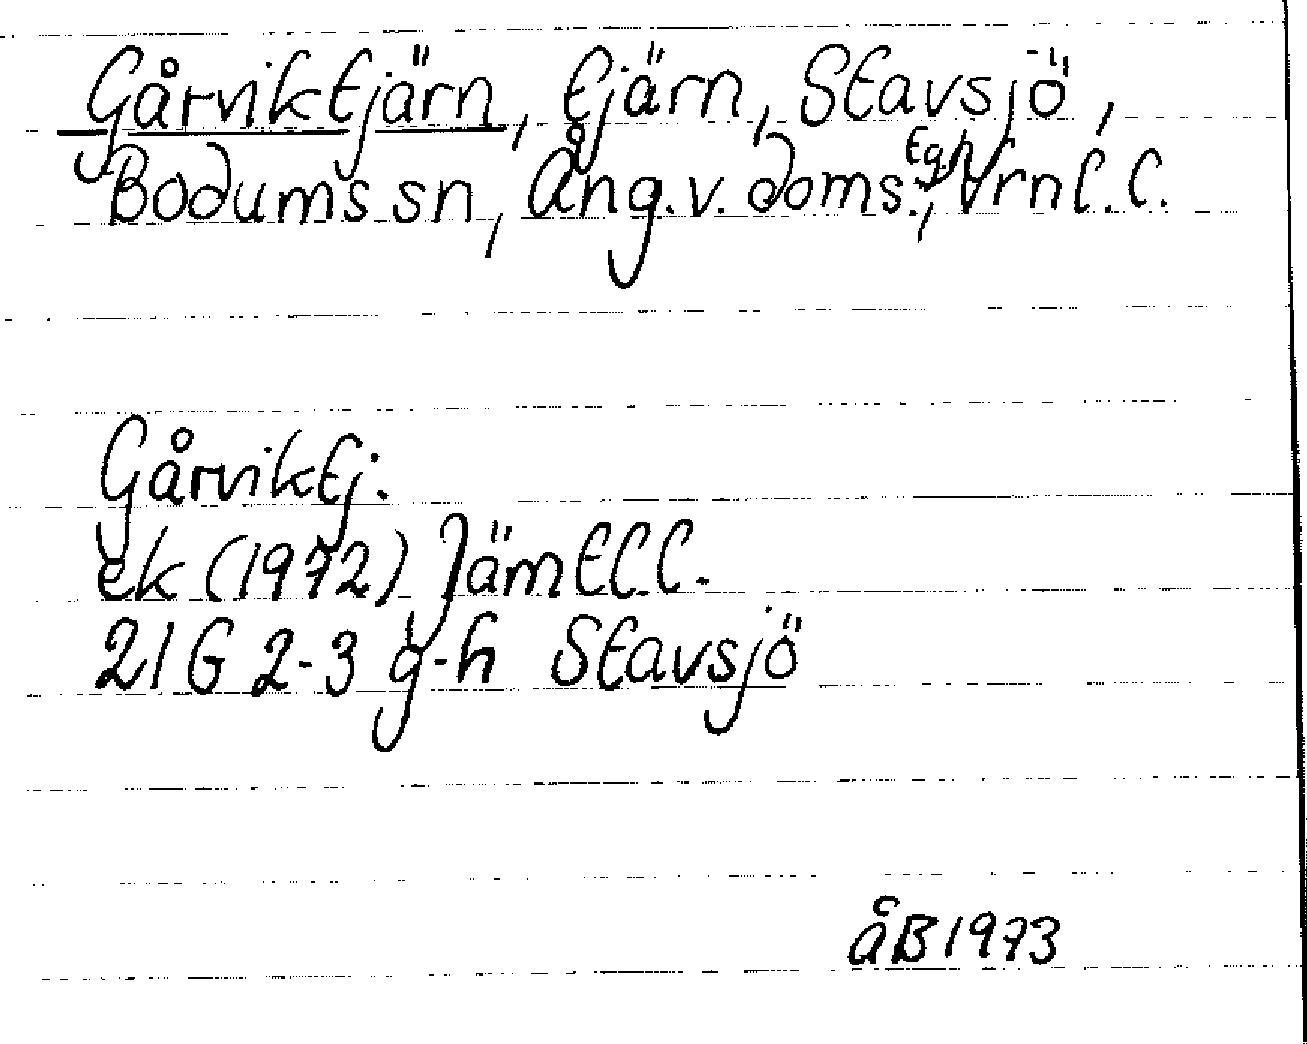 Gårviktjärn, tjärn, Stavsjö,
Bodums sn, Ång. v. doms. tg., Vrnl. l.
Gårviktj.
ek (1972) Jämtl. l.
21 G 2-3 g-h Stavsjö
åB 1973